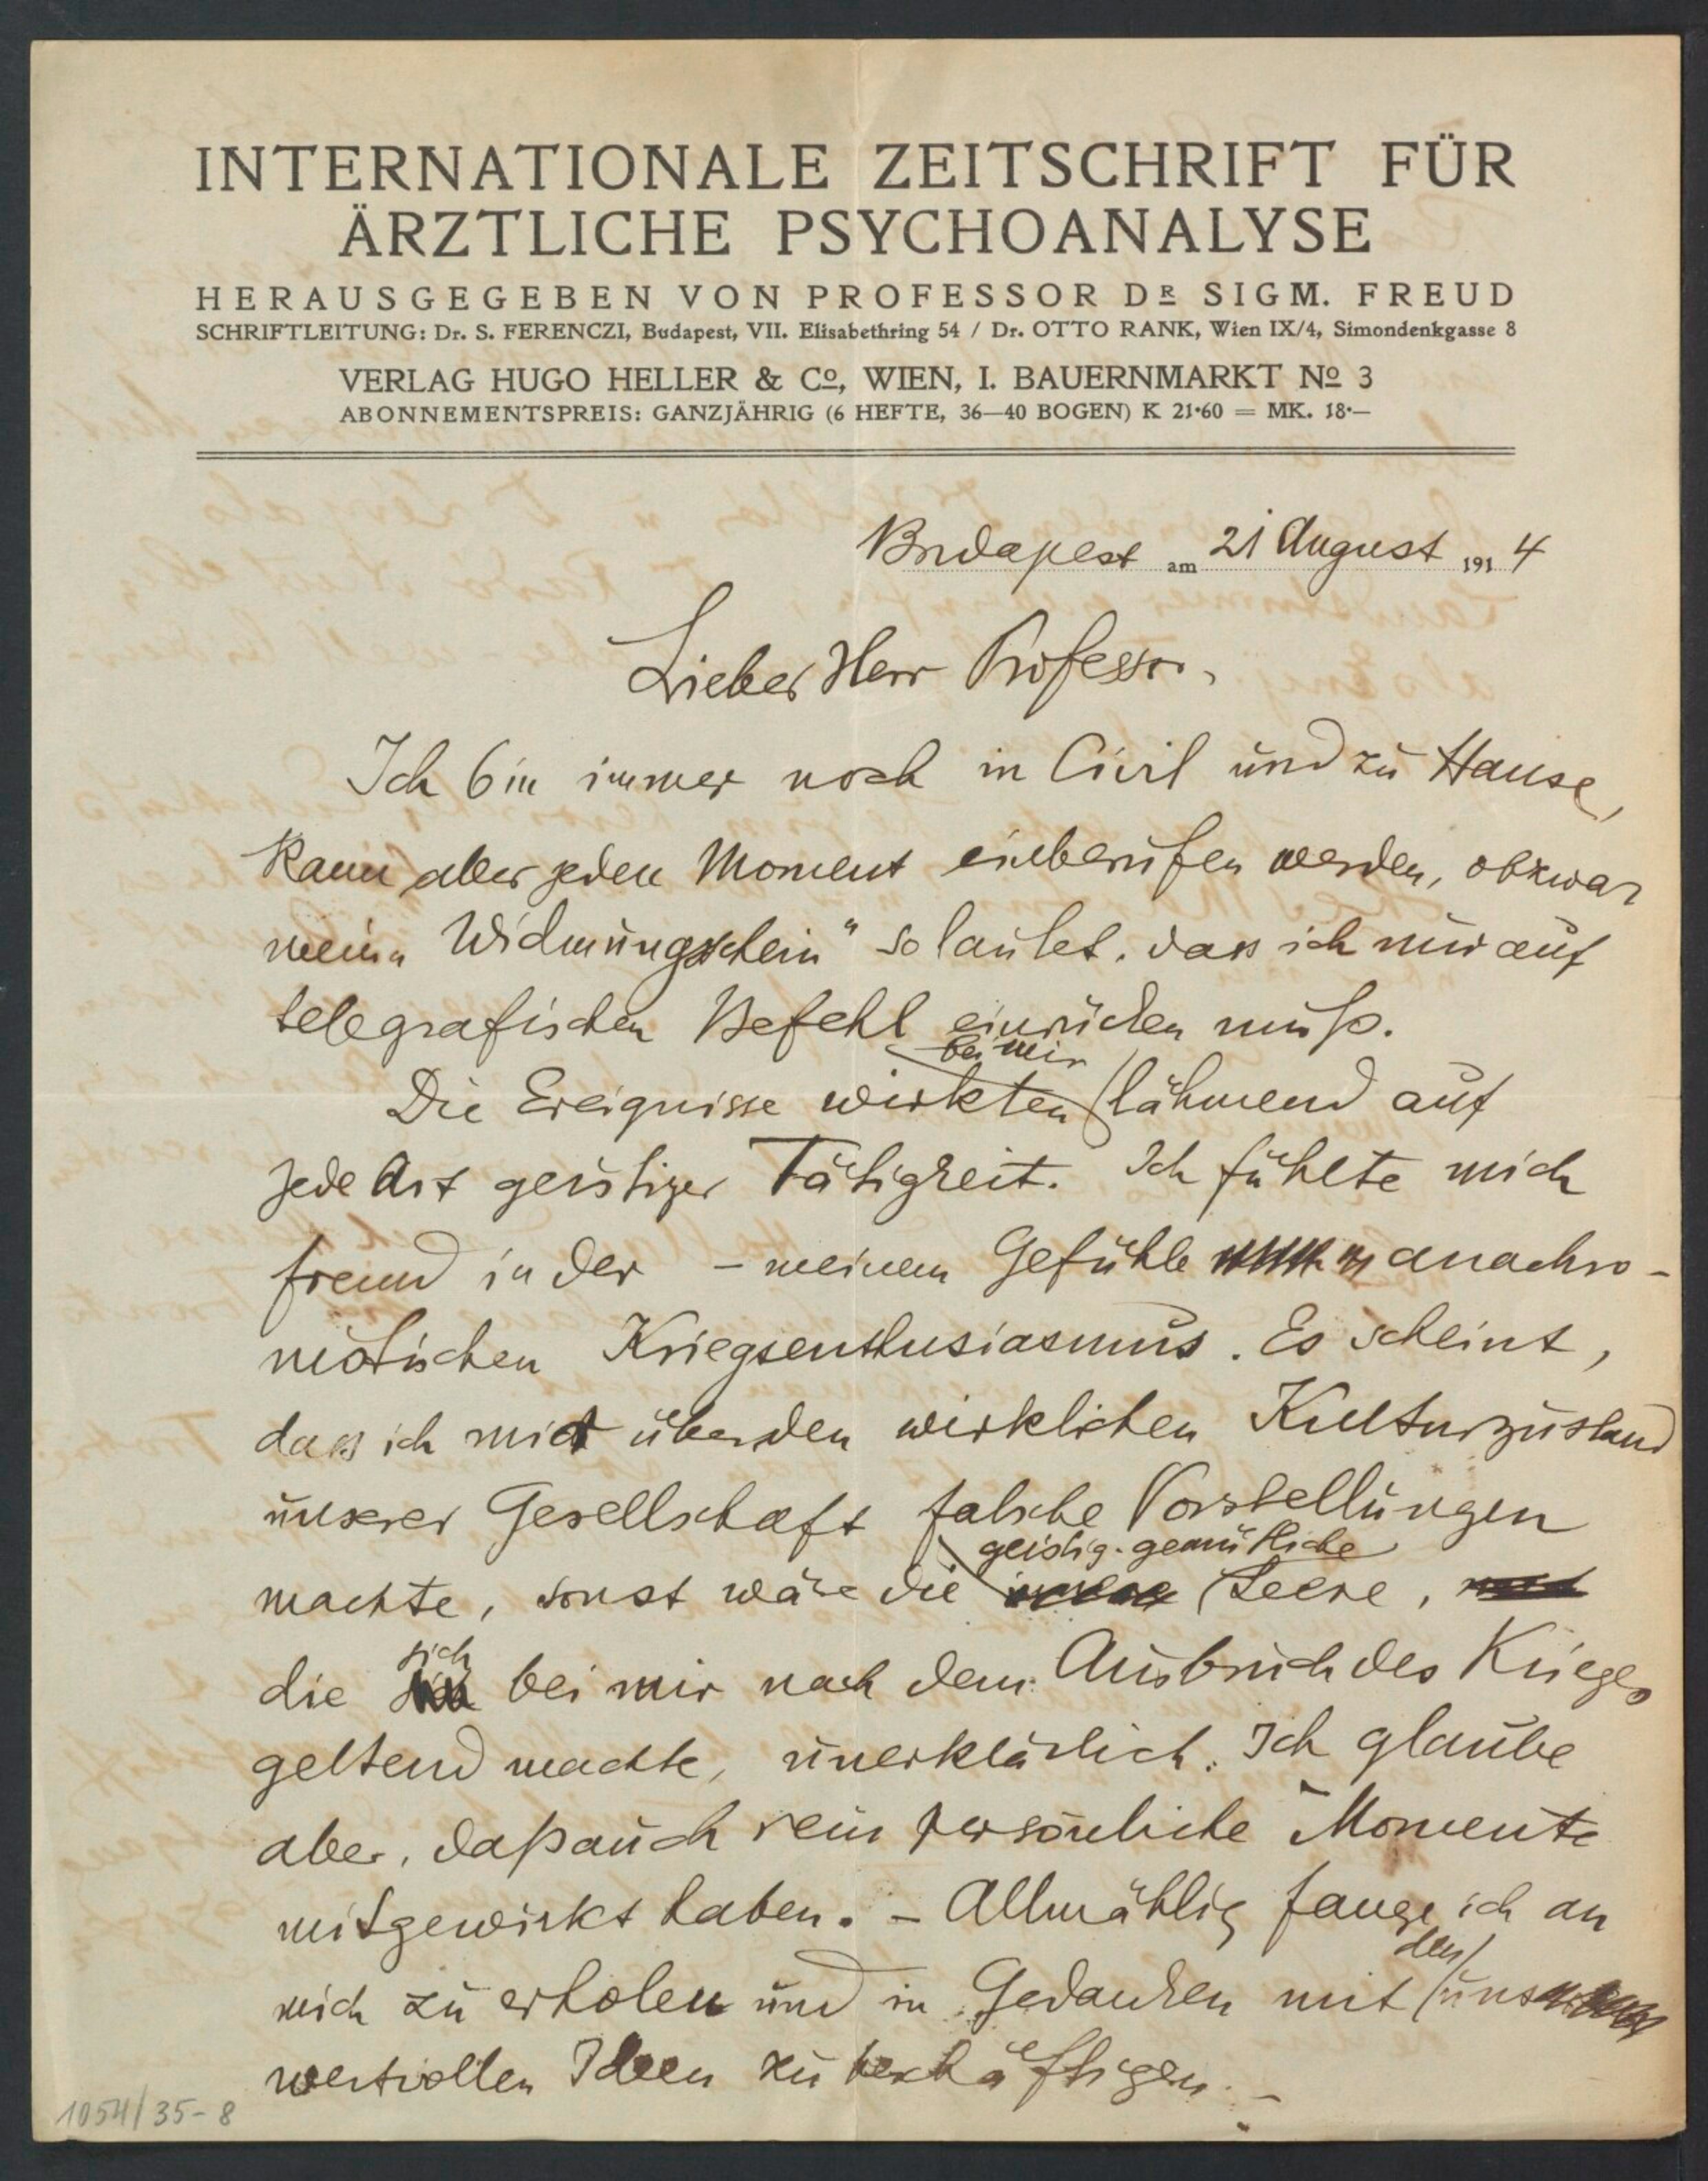 INTERNATIONALE ZEITSCHRIFT FÜR
ÄRZTLICHE PSYCHOANALYSE
HERAUSGEGEBEN VON PROFESSOR DR SIGM. FREUD
SCHRIFTLEITUNG: Dr. S. FERENCZI, Budapest, VII. Elisabethring 54 / Dr. OTTO RANK, Wien IX/4, Simondenkgasse 8
VERLAG HUGO HELLER & Co, WIEN, I. BAUERNMARKT No 3
ABONNEMENTSPREIS: GANZJÄHRIG (6 HEFTE, 36—40 BOGEN) K 21·60 = MK. 18·—
Budapest am 21 August 1914
Lieber Herr Professor,
Ich bin immer noch in Civil und zu Hause,
kann aber jeden Moment einberufen werden, obzwar
mein „Widmungsschein" so lautet, dass ich nur auf
telegrafischen Befehl einrücken muß.
bei mir
Die Ereignisse wirkten lähmend auf
jede Art geistiger Tätigkeit. Ich fühlte mich
fremd in der – meinem Gefühle anachro-
nistischen Kriegsenthusiasmus. Es scheint,
dass ich mir über den wirklichen Kulturzustand
unserer Gesellschaft falsche Vorstellungen
geistig-gemütliche
machte, sonst wäre die innere Leere,
sich
die bei mir nach dem Ausbruch des Krieges
geltend machte, unerklärlich. Ich glaube
aber, daß auch rein persönliche Momente
mitgewirkt haben. – Allmählig fange ich an
den
mich zu erholen und in Gedanken mit uns
wertvollen Ideen zu beschäftigen. –
1054/35-8